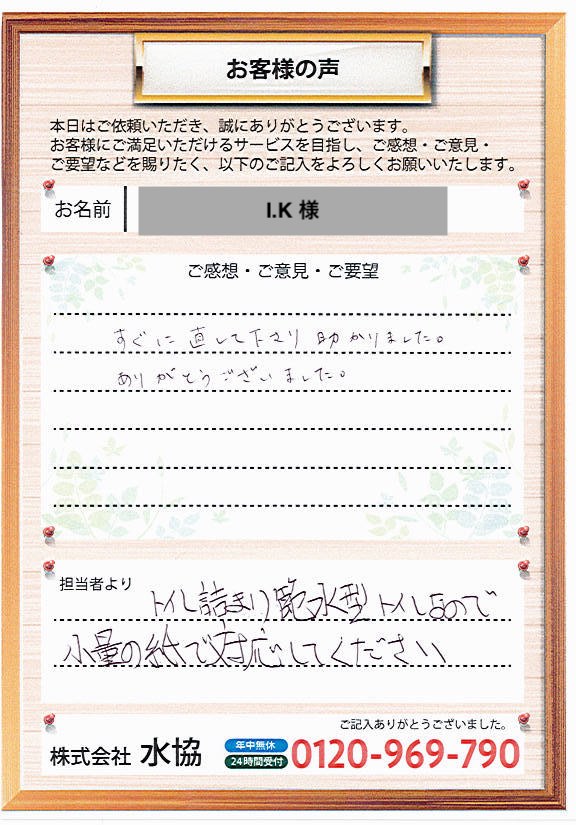 お客様の声
本日はご依頼いただき、誠にありがとうございます。
お客様にご満足いただけるサービスを目指し、ご感想・ご意見・
ご要望などを賜りたく、以下のご記入をよろしくお願いいたします。
お名前 I.K 様
ご感想・ご意見・ご要望
すぐに直して下さり助かりました。
ありがとうございました。
担当者より
トイレ詰まり節水型トイレなので
小量の紙で対応してください
ご記入ありがとうございました。
株式会社 水協 年中無休 24時間受付 0120-969-790